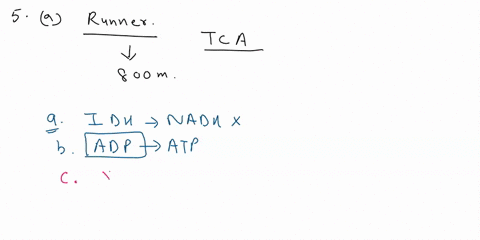 5. (a) Runner. TCA
↓
800m.
a. IDH → NADH x
b. ADP → ATP
c.